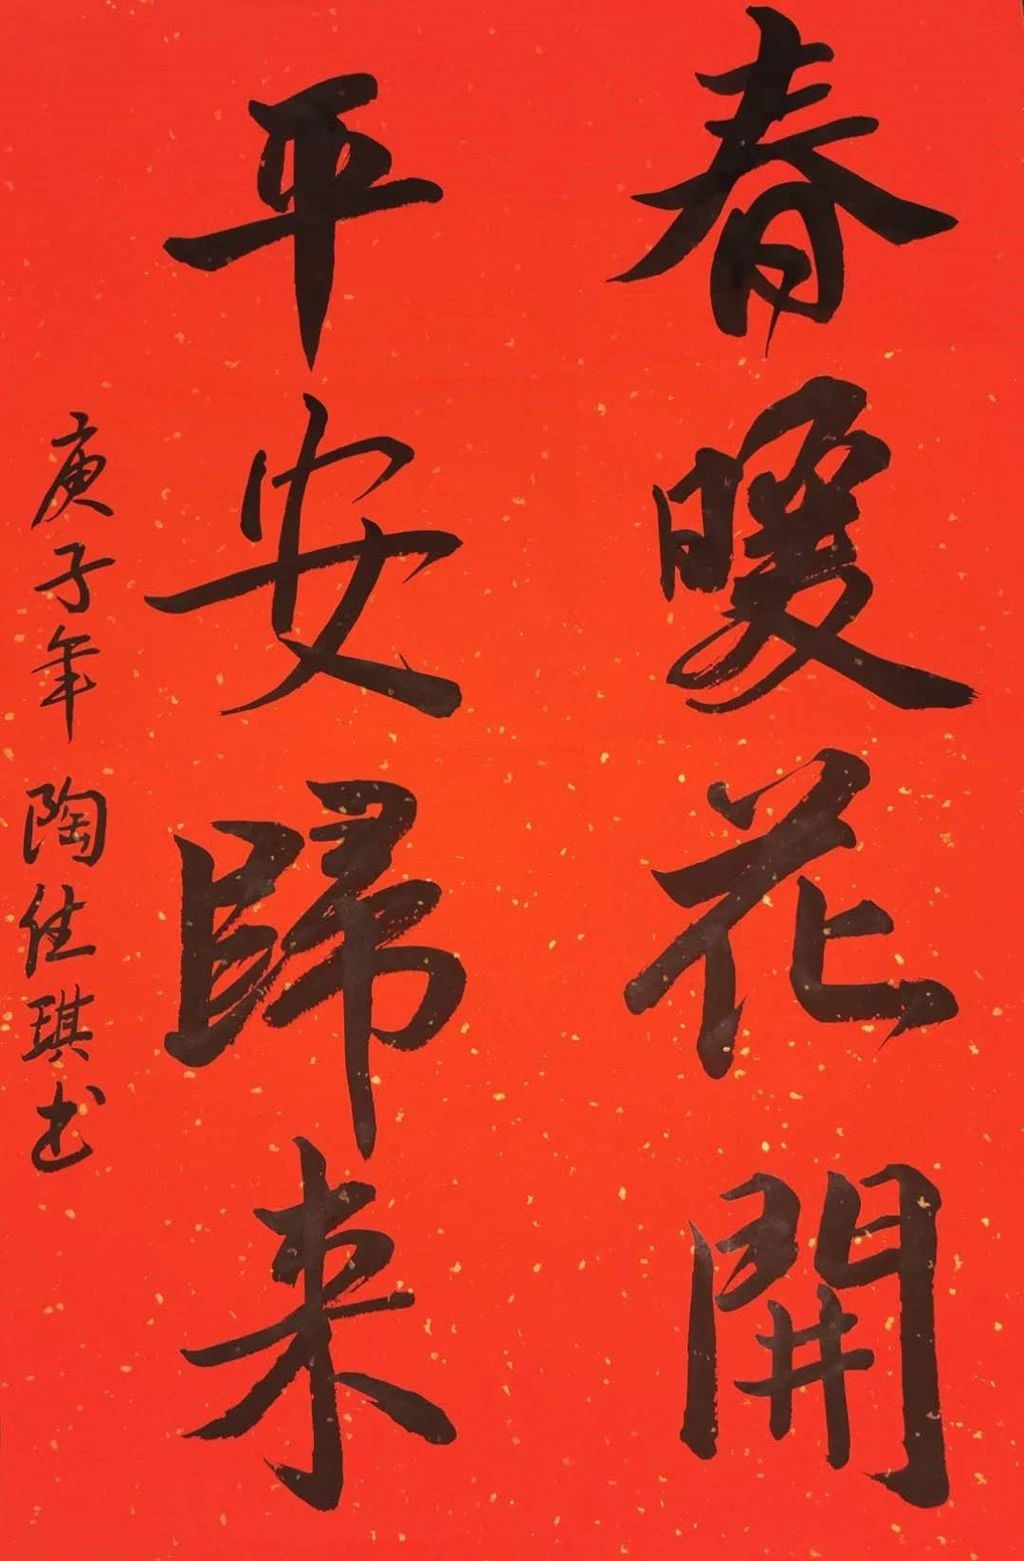 春暖花開
平安歸来
庚子年 陶佳琪书